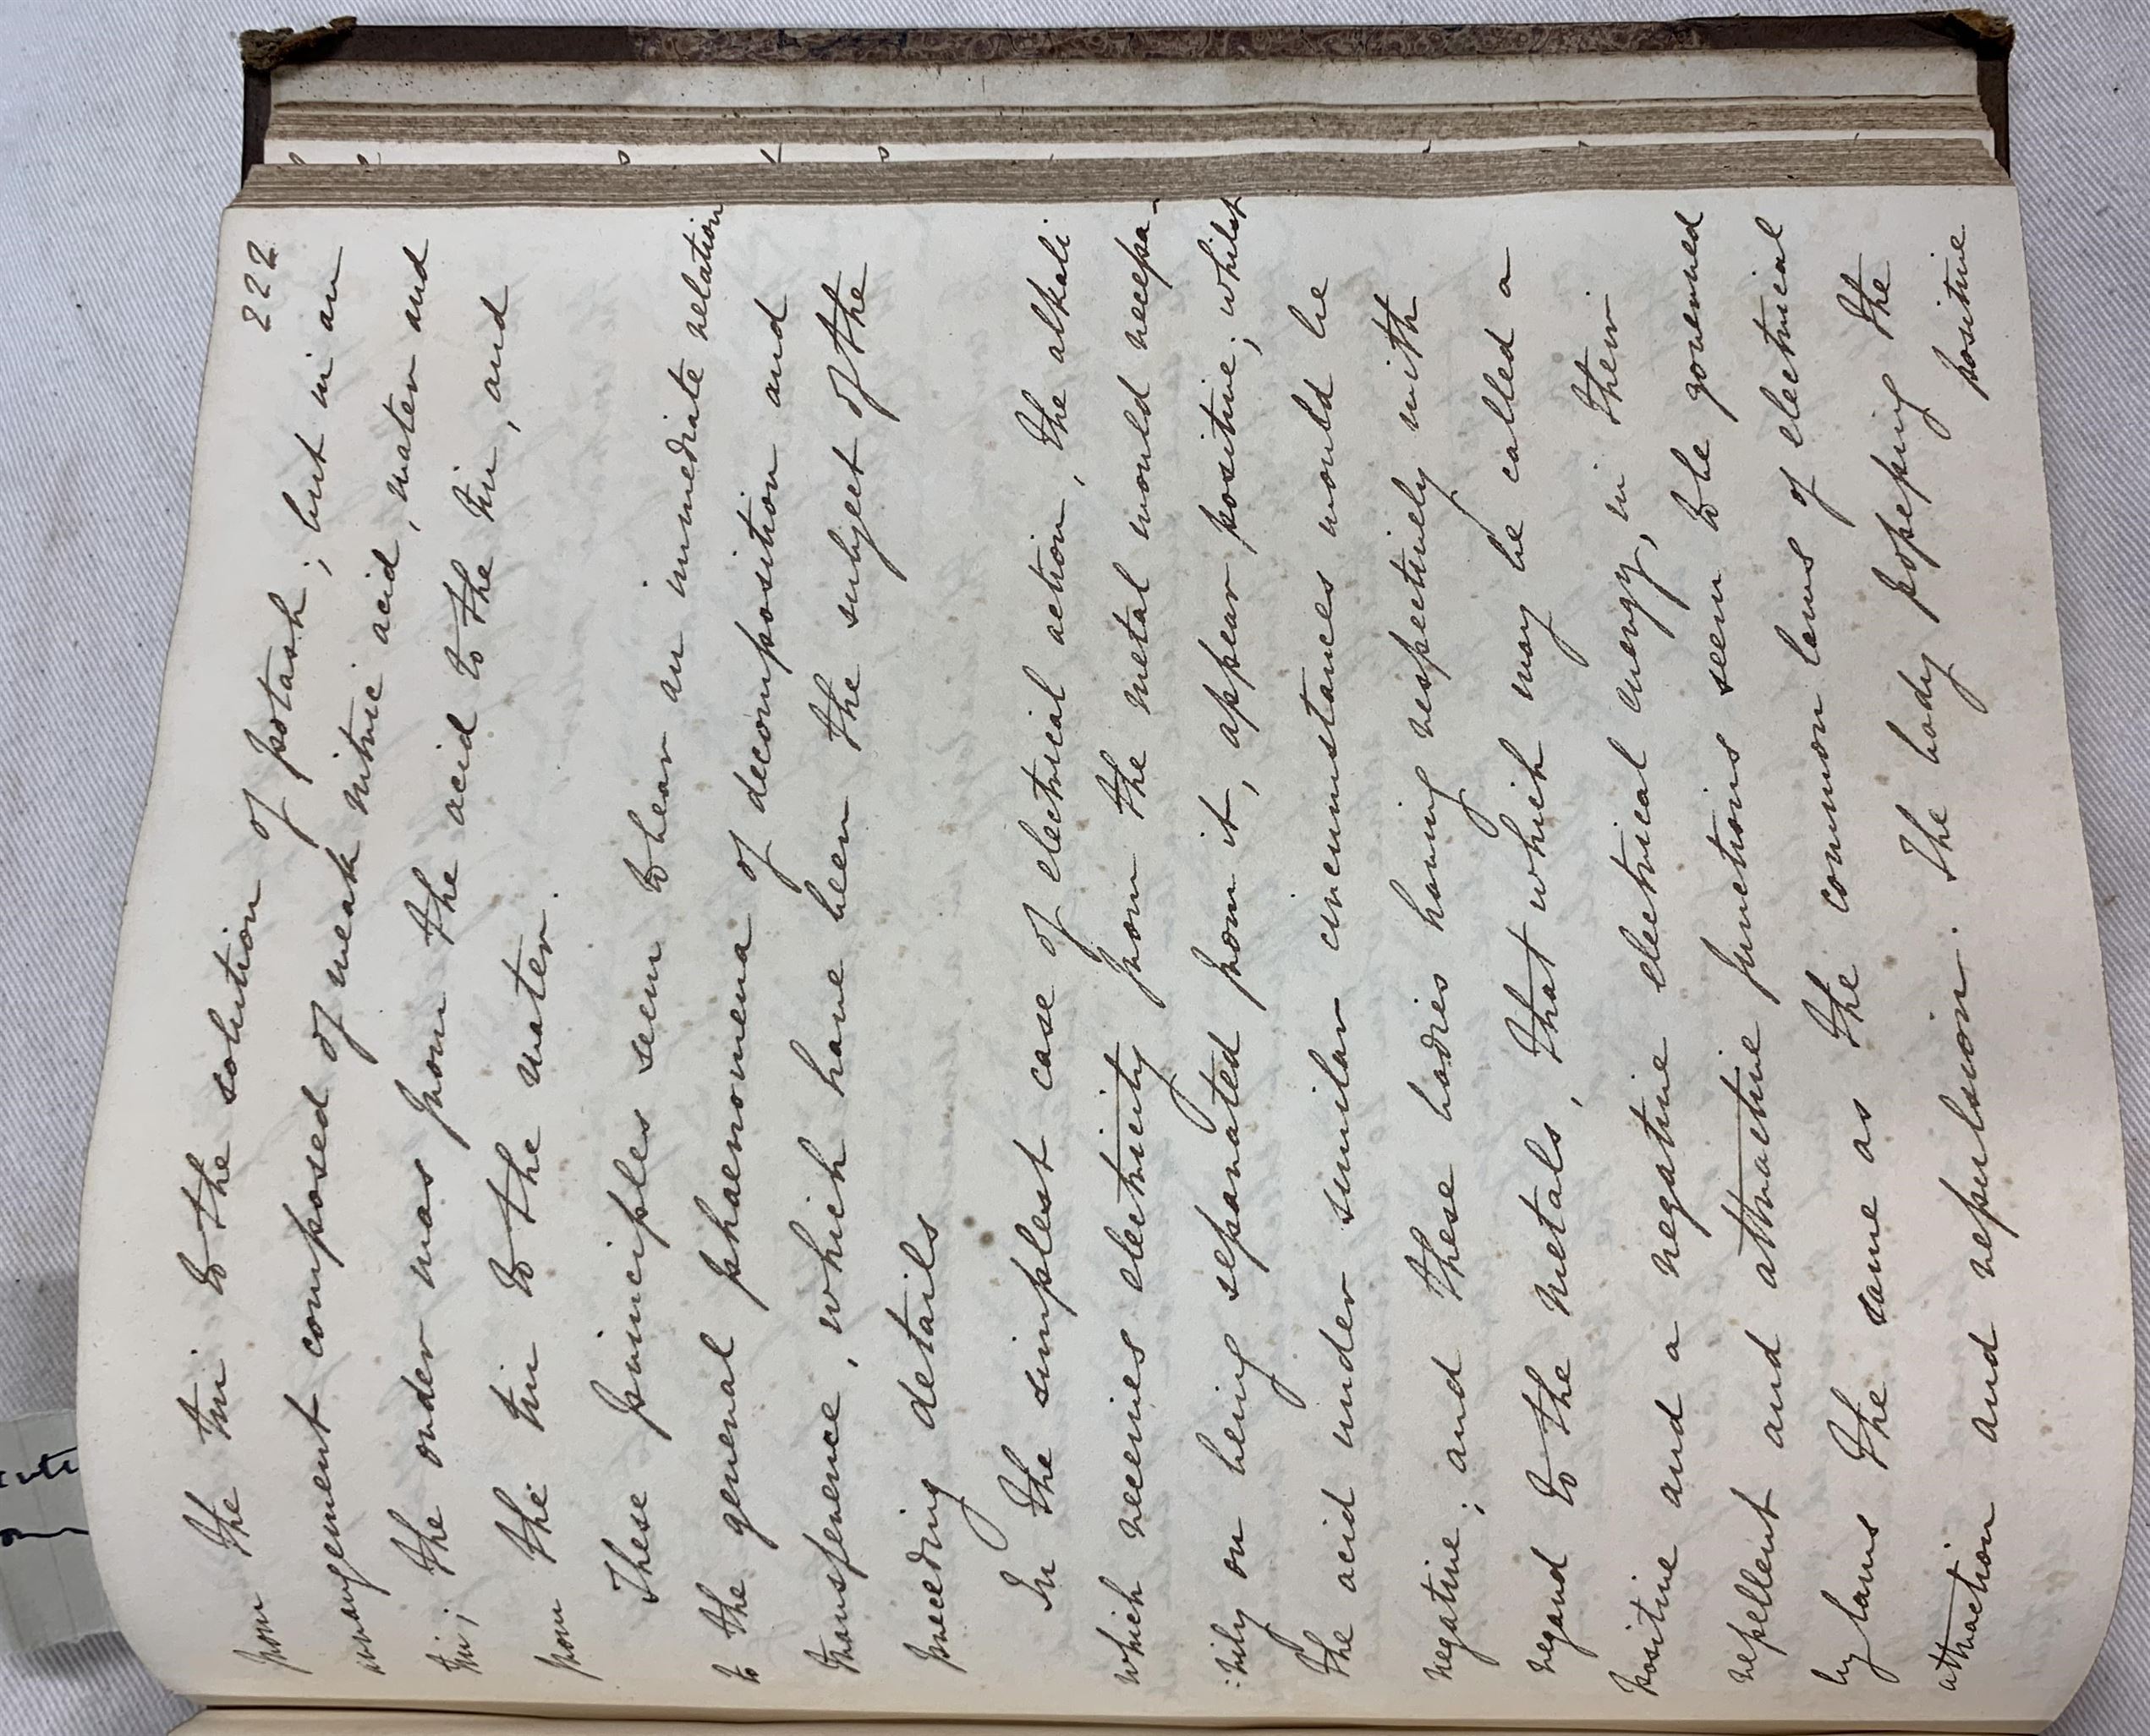 222
from the tin to the solution of potash; but in an
arrangement composed of weak nitric acid, water and
tin; the order was from the acid to the tin, and
from the tin to the water.
These principles seem to bear an immediate relation
to the general phaenomena of decomposition and
transference, which have been the subject of the
preceding details
In the simplest case of electrical action, the alkali
which receives electricity from the metal would necessa-
:rily on being separated from it, appear positive; whilst
the acid under similar circumstances would be
negative; and these bodies having respectively with
regard to the metals, that which may be called a
positive and a negative electrical energy, in their
repellent and attractive functions seem to be governed
by laws the same as the common laws of electrical
attraction and repulsion. The body possessing the
positive